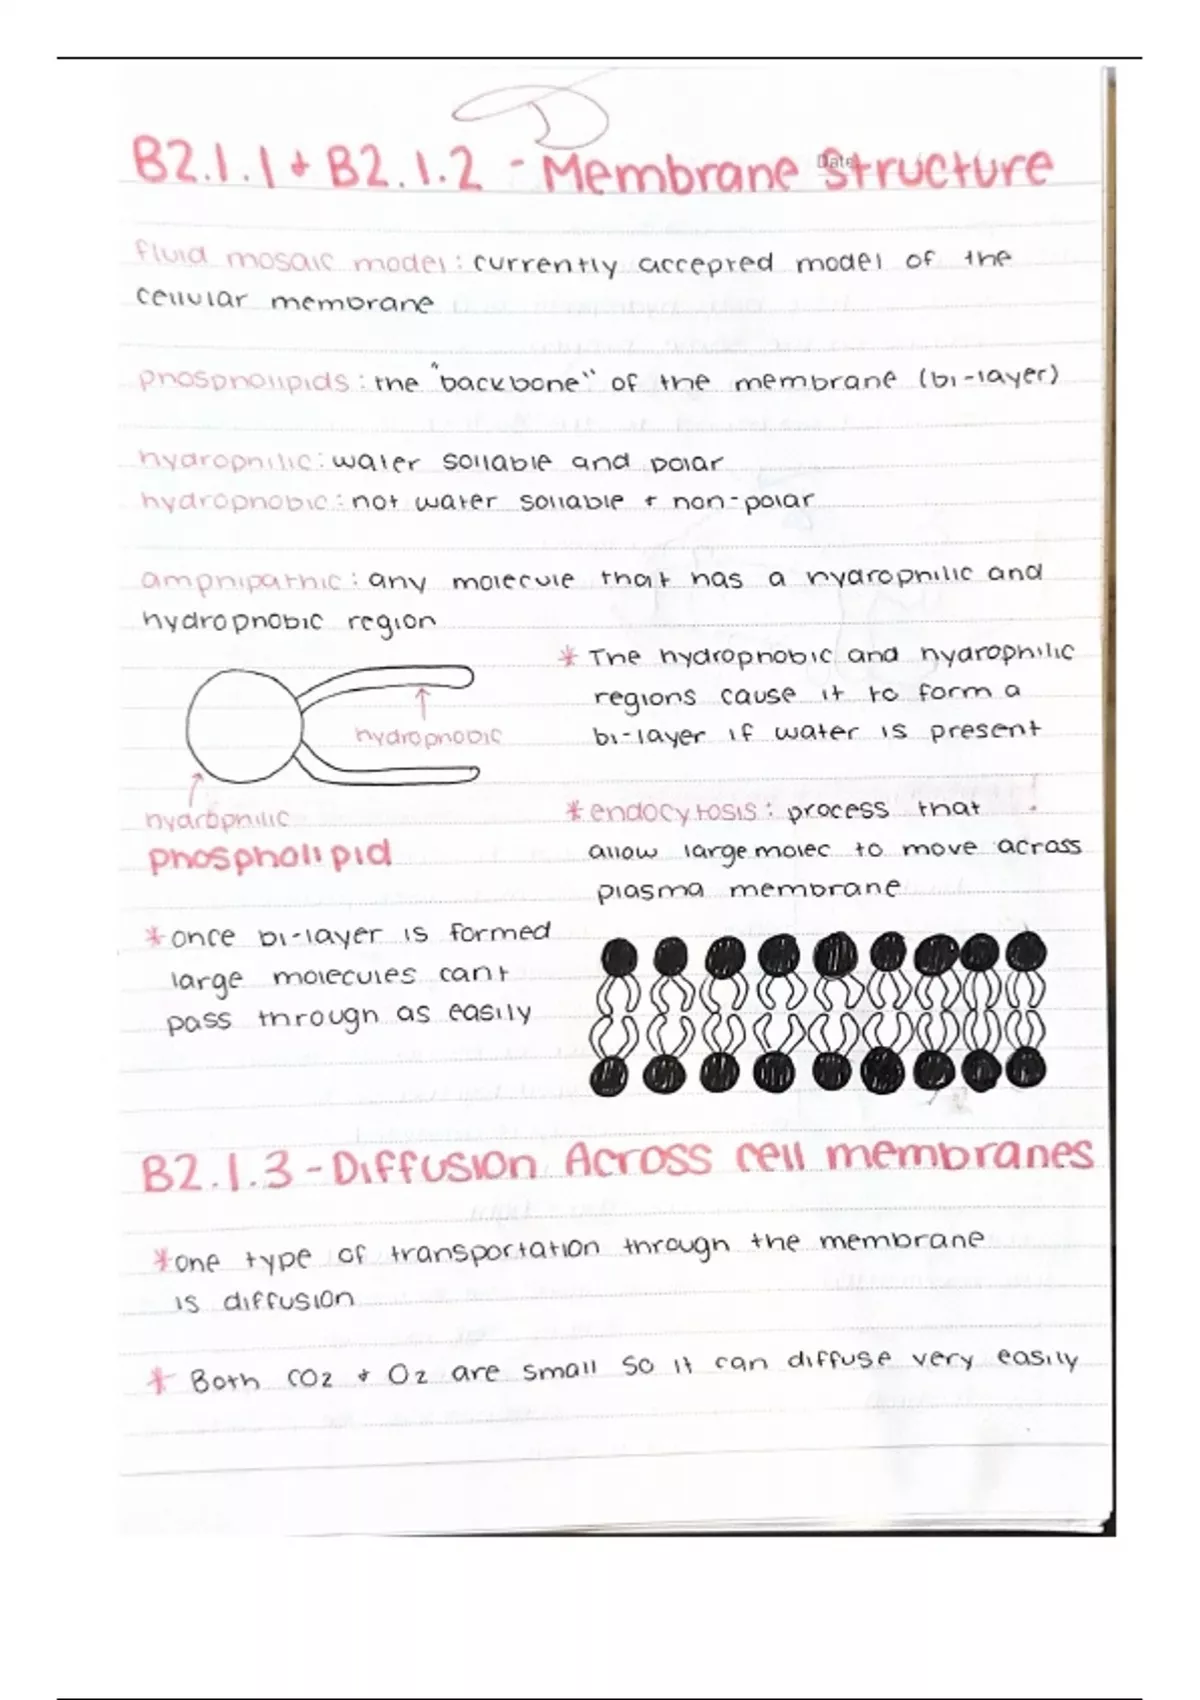 B2.1.1 + B2.1.2 - Membrane Structure
Date
fluid mosaic model: currently accepted model of the
cellular membrane
phospholipids: the "backbone" of the membrane (bi-layer)
hydrophilic: water sollable and polar
hydrophobic: not water sollable + non-polar
amphipathic: any molecule that has a hydrophilic and
hydrophobic region
* The hydrophobic and hydrophilic
regions cause it to form a
bi-layer if water is present
hydrophobic
hydrophilic
phospholipid
* endocytosis: process that
allow large molec to move across
plasma membrane
* once bi-layer is formed
large molecules cant
pass through as easily
B2.1.3 - Diffusion Across cell membranes
* one type of transportation through the membrane
is diffusion
* Both CO2 + O2 are small so it can diffuse very easily